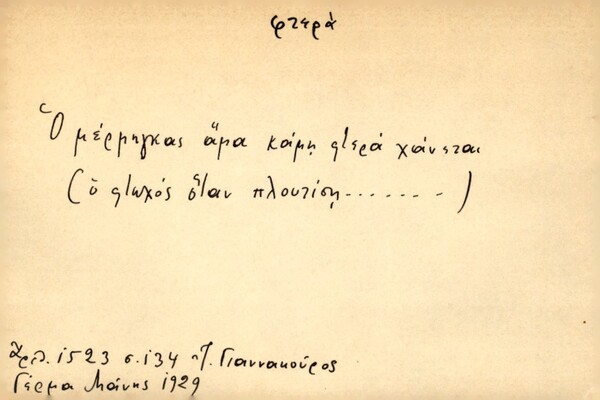 φτερὰ
Ὁ μέρμηγκας ἅμα κάμῃ φτερά χάνεται
(ὁ φτωχός ὅταν πλουτίσῃ.......)
Ἀρχ. 1523 σ. 134 Π. Γιαννακούρος
Γέρμα Μάνης 1929